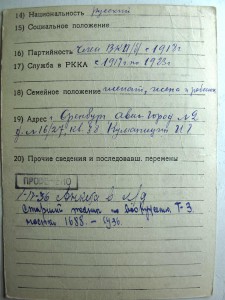 14) Национальность русский
15) Социальное положение
16) Партийность Член ВКП/б/ с 1917 г
17) Служба в РККА с 1917 г по 1923 г.
18) Семейное положение женат, жена и ребенок
19) Адрес г. Оренбург Авиа-Город № 2
д. № 16/27, кв. 78
20) Прочие сведения и последовавш. перемены
ПРОВЕРЕНО
Анкета в л/д
Старший техник по вооружения Т-3.
1688. - 1936.